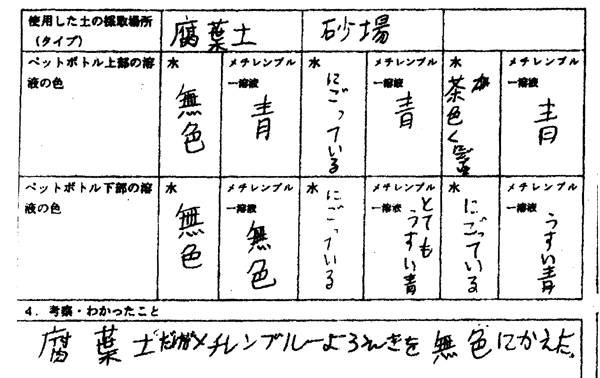 使用した土の採取場所 腐葉土 砂場
(タイプ)
ペットボトル上部の溶 水 メチレンブル 水 メチレンブル 水 メチレンブル
液の色 ー溶液 ー溶液 ー溶液
無色 青 にごっている 青 茶色 青
ペットボトル下部の溶 水 メチレンブル 水 メチレンブル 水 メチレンブル
液の色 ー溶液 ー溶液 ー溶液
無色 無色 にごっている とてもうすい青 にごっている うすい青
4. 考察・わかったこと
腐葉土だけがメチレンブルーようえきを無色にかえた。